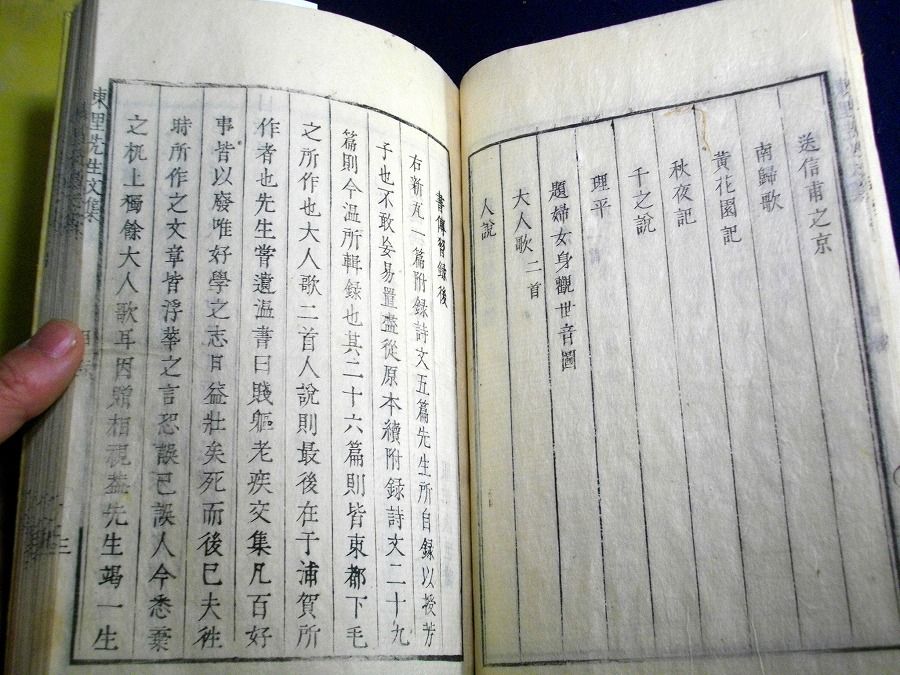 送信甫之京
南歸歌
黄花園記
秋夜記
千之說
理平
題婦女身觀世音圖
大人歌二首
人說
書傳習録後
右新瓦一篇附録詩文五篇先生所自録以授芳
子也不敢妄易置盡從原本續附録詩文二十九
篇則今温所輯録也其二十六篇則皆東都下毛
之所作也大人歌二首人說則最後在于浦賀所
作者也先生嘗遺温書曰賤軀老疾交集凡百好
事皆以廢唯好學之志日益壯矣死而後已夫徃
時所作之文章皆浮華之言恐誤已誤人今悉棄
之机上獨餘大人歌耳因贈相視蓋先生竭一生
東里先生文集
三